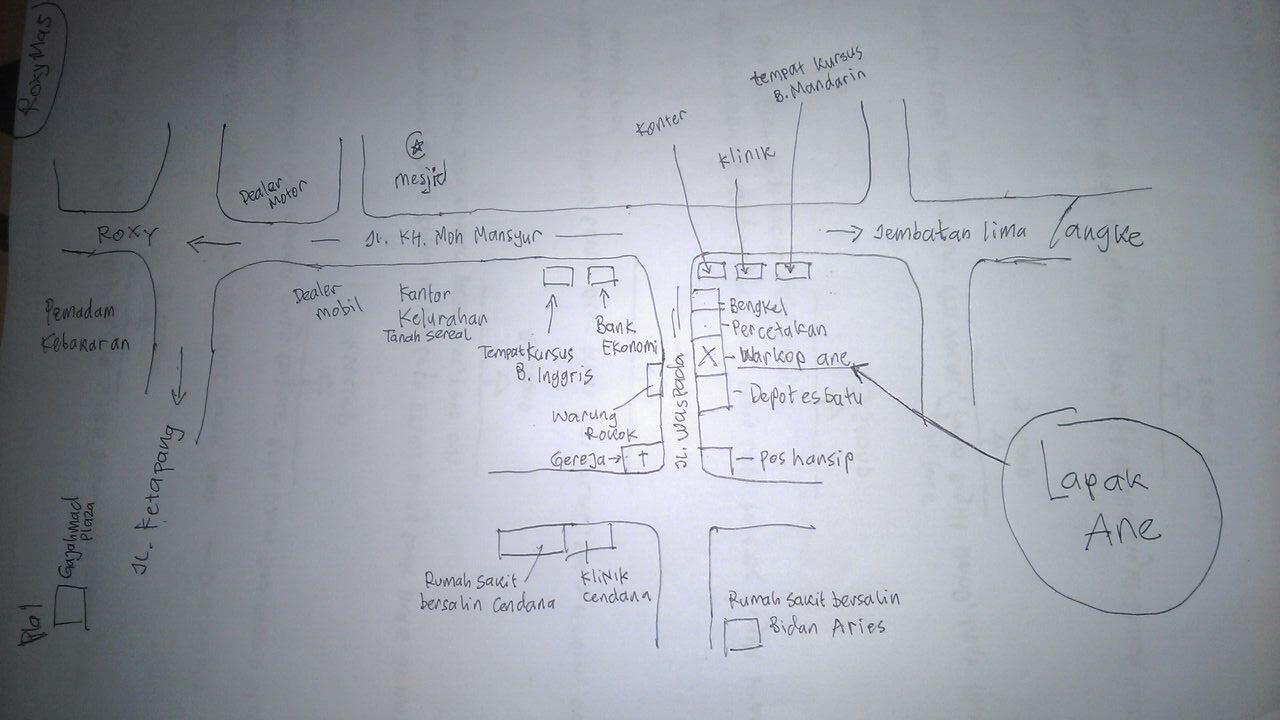 Roxy Mas
tempat kursus
B. Mandarin
Konter
Klinik
mesjid
Dealer
Motor
Roxy
Jl. KH. Moh Mansyur
Jembatan lima / angke
Pemadam
Kebakaran
Dealer
mobil
Kantor
Kelurahan
Tanah sereal
Tempat Kursus
B. Inggris
Bank
Ekonomi
Bengkel
Percetakan
X
Warkop ane
Depot es batu
Jl. Waspada
Warung
Rokok
Gereja
Pos hansip
Jl. Ketapang
Lapak
Ane
Gajahmad
Plaza
Rumah sakit
bersalin Cendana
Klinik
cendana
Rumah sakit bersalin
Bidan Aries